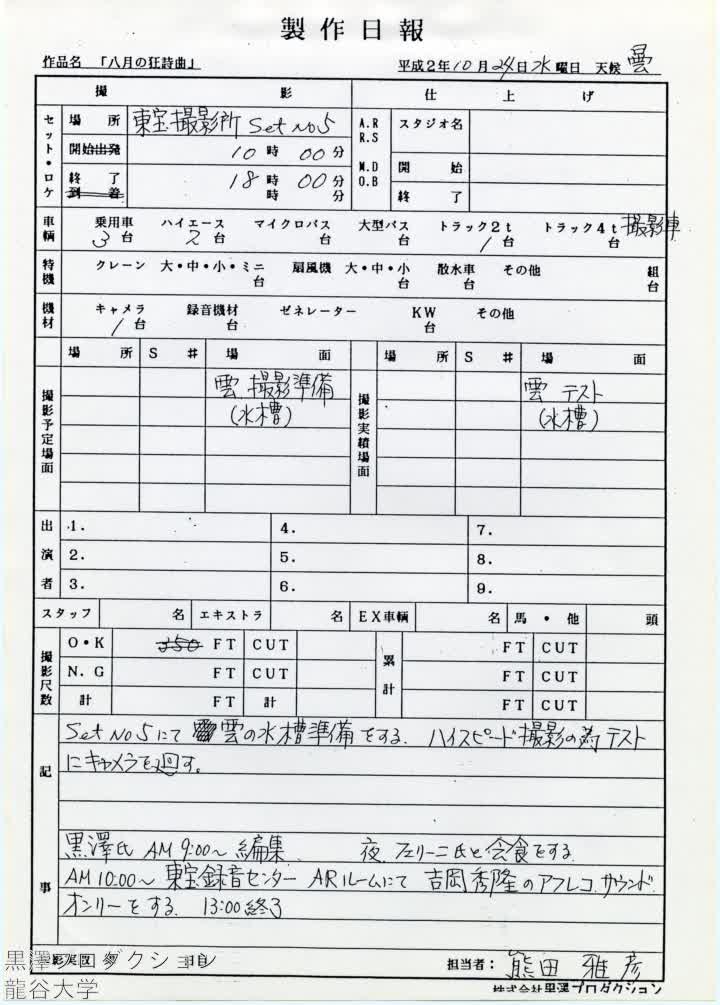 製作日報
作品名 「八月の狂詩曲」 平成2年10月24日水曜日 天候 曇
撮 影 仕 上 げ
セット・ロケ 場 所 東宝撮影所 Set No5 A.R R.S M.D O.B スタジオ名
開始出発 10時 00分 開 始
終了到着 18時 00分 終 了
車輌 乗用車 3台 ハイエース 2台 マイクロバス 台 大型バス 台 トラック2t 1台 トラック4t 台 撮影車
特機 クレーン 大・中・小・ミニ 台 扇風機 大・中・小 台 散水車 台 その他 組 台
機材 キャメラ 1台 録音機材 台 ゼネレーター KW 台 その他
場 所 S # 場 面 場 所 S # 場 面
撮影予定場面 雲 撮影準備 撮影実績場面 雲 テスト
(水槽) (水槽)
出演者 1. 4. 7.
2. 5. 8.
3. 6. 9.
スタッフ 名 エキストラ 名 EX車輌 名 馬・他 頭
撮影尺数 O・K 350 FT CUT 累計 FT CUT
N.G FT CUT FT CUT
計 FT 計 FT CUT
記事
Set No5にて 雲の水槽準備をする. ハイスピード撮影の為テスト
にキャメラを廻す。
黒澤氏 AM 9:00〜 編集. 夜. フェリーニ氏と会食をする.
AM10:00〜 東宝録音センター ARルームにて 吉岡秀隆のアフレコ.サウンド
オンリーをする. 13:00終了
担当者: 熊田雅彦
株式会社黒澤プロダクション
龍谷大学